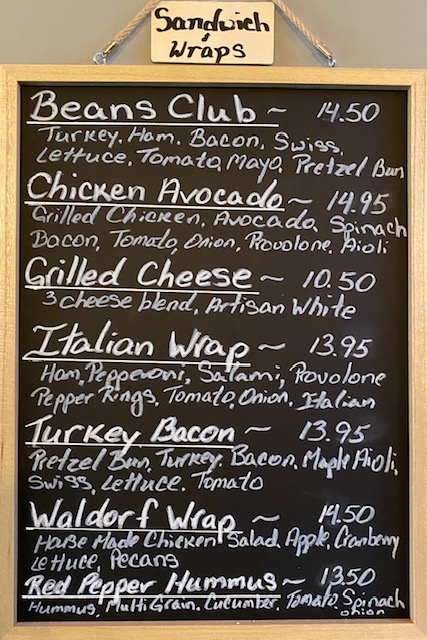 Sandwich
&
Wraps
Beans Club ~ 14.50
Turkey, Ham, Bacon, Swiss,
Lettuce, Tomato, Mayo, Pretzel Bun
Chicken Avocado ~ 14.95
Grilled Chicken, Avocado, Spinach
Bacon, Tomato, Onion, Provolone, Aioli
Grilled Cheese ~ 10.50
3 cheese blend, Artisan White
Italian Wrap ~ 13.95
Ham, Pepperoni, Salami, Provolone
Pepper Rings, Tomato, Onion, Italian
Turkey Bacon ~ 13.95
Pretzel Bun, Turkey, Bacon, Maple Aioli,
Swiss, Lettuce, Tomato
Waldorf Wrap ~ 14.50
House Made Chicken Salad, Apple, Cranberry
Lettuce, Pecans
Red Pepper Hummus ~ 13.50
Hummus, Multi Grain, Cucumber, Tomato, Spinach
onion